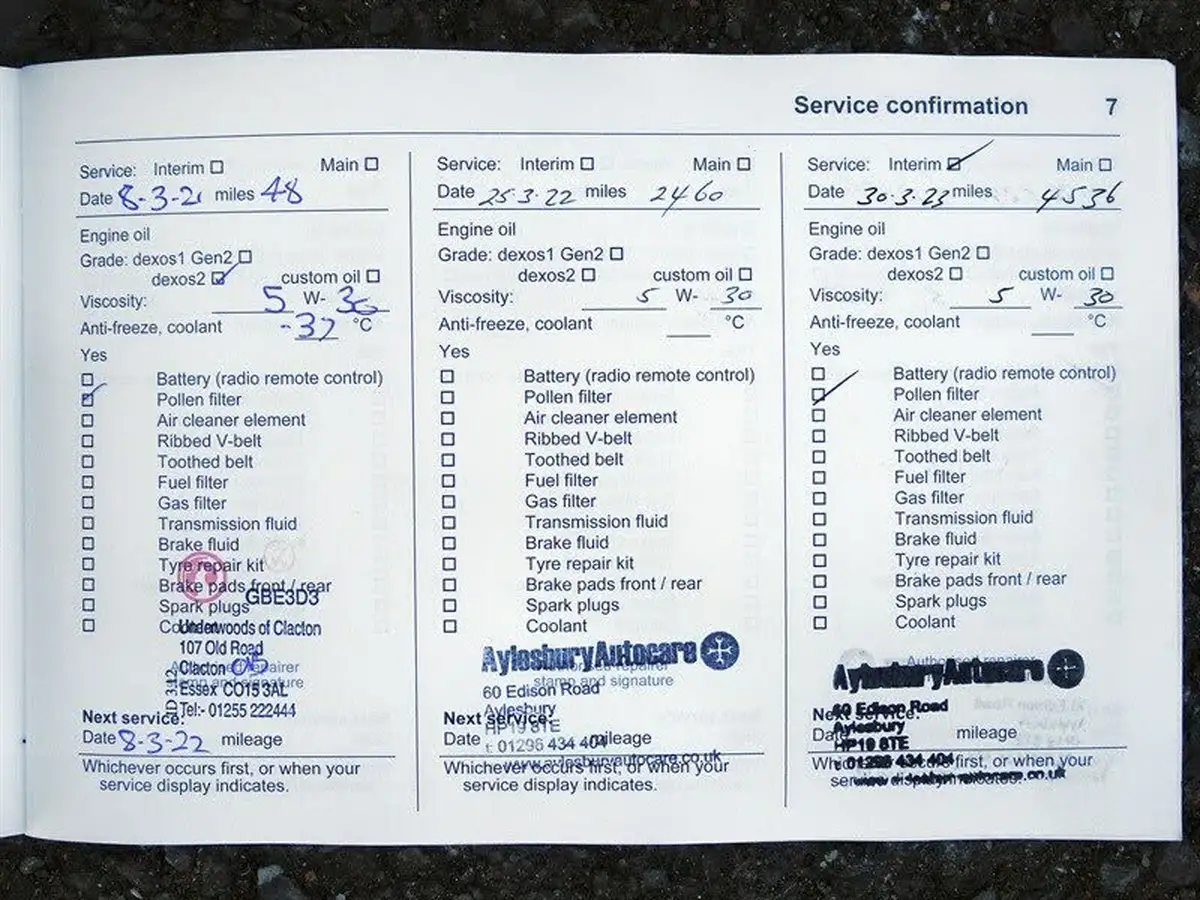 Service confirmation 7
Service: Interim Main
Date 8-3-21 miles 48
Engine oil
Grade: dexos1 Gen2
dexos2 custom oil
Viscosity: 5 W- 30
Anti-freeze, coolant -37 °C
Yes
Battery (radio remote control)
Pollen filter
Air cleaner element
Ribbed V-belt
Toothed belt
Fuel filter
Gas filter
Transmission fluid
Brake fluid
Tyre repair kit
Brake pads front / rear
GBE3D3
Spark plugs
Coolant
Underwoods of Clacton
107 Old Road
Clacton
Essex CO15 3AL
stamp and signature
Tel:- 01255 222444
Next service:
Date 8-3-22 mileage
Whichever occurs first, or when your
service display indicates.
Service: Interim Main
Date 25·3·22 miles 2460
Engine oil
Grade: dexos1 Gen2
dexos2 custom oil
Viscosity: 5 W- 30
Anti-freeze, coolant °C
Yes
Battery (radio remote control)
Pollen filter
Air cleaner element
Ribbed V-belt
Toothed belt
Fuel filter
Gas filter
Transmission fluid
Brake fluid
Tyre repair kit
Brake pads front / rear
Spark plugs
Coolant
Aylesbury Autocare
stamp and signature
60 Edison Road
Aylesbury
HP19 8TE
Next service:
Date mileage
t: 01296 434 404
www.aylesburyautocare.co.uk
Whichever occurs first, or when your
service display indicates.
Service: Interim Main
Date 30·3·23 miles 4536
Engine oil
Grade: dexos1 Gen2
dexos2 custom oil
Viscosity: 5 W- 30
Anti-freeze, coolant °C
Yes
Battery (radio remote control)
Pollen filter
Air cleaner element
Ribbed V-belt
Toothed belt
Fuel filter
Gas filter
Transmission fluid
Brake fluid
Tyre repair kit
Brake pads front / rear
Spark plugs
Coolant
Authorised repairer
Aylesbury Autocare
60 Edison Road
Aylesbury
HP19 8TE
Next service:
Date mileage
t: 01296 434 404
Whichever occurs first, or when your
service display indicates.